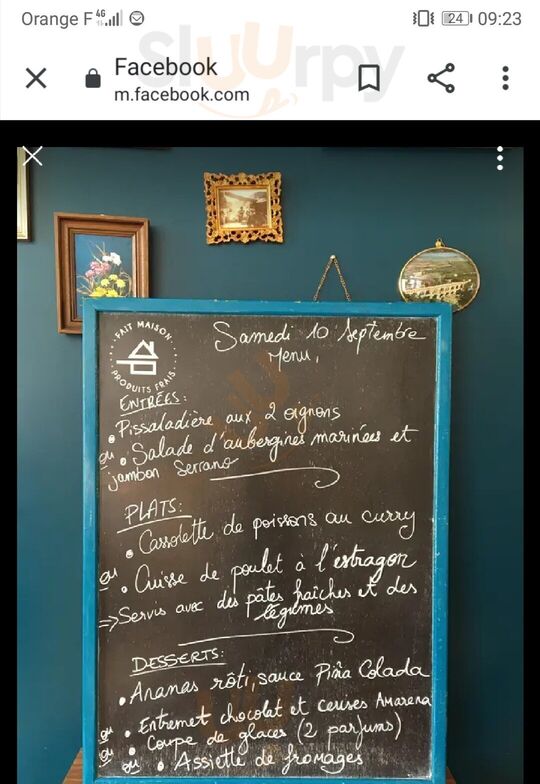 Orange F 4G 24 09:23
Slurpy
Facebook
m.facebook.com
FAIT MAISON
PRODUITS FRAIS
Samedi 10 Septembre
Menu.
ENTRÉES:
• Pissaladière aux 2 oignons
ou • Salade d'aubergines marinées et
jambon Serrano
PLATS:
• Cassolette de poissons au curry
ou • Cuisse de poulet à l'estragon
=> Servis avec des pâtes fraîches et des
légumes
DESSERTS:
• Ananas rôti, sauce Piña Colada
ou • Entremet chocolat et cerises Amarena
ou • Coupe de glaces (2 parfums)
ou • Assiette de fromages